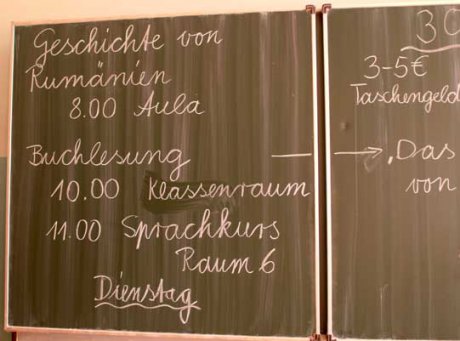 Geschichte von
Rumänien
8.00 Aula
Buchlesung
10.00 Klassenraum
11.00 Sprachkurs
Raum 6
Dienstag
30
3-5€
Taschengeld
„Das
von